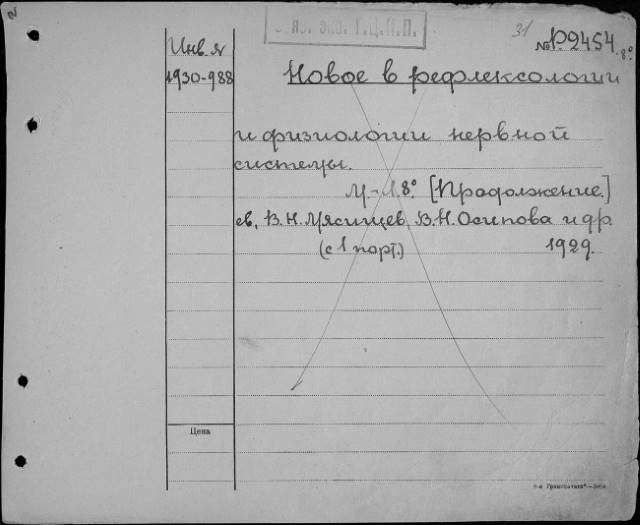 31
№ P2454.8°
Инв. №
1930-988
Новое в рефлексологии
и физиологии нервной
системы.
М.-Л. 8°. [Продолжение.]
ев, В.Н. Мясищев, В.Н. Осипова и др.
(с 1 порт.) 1929.
Цена